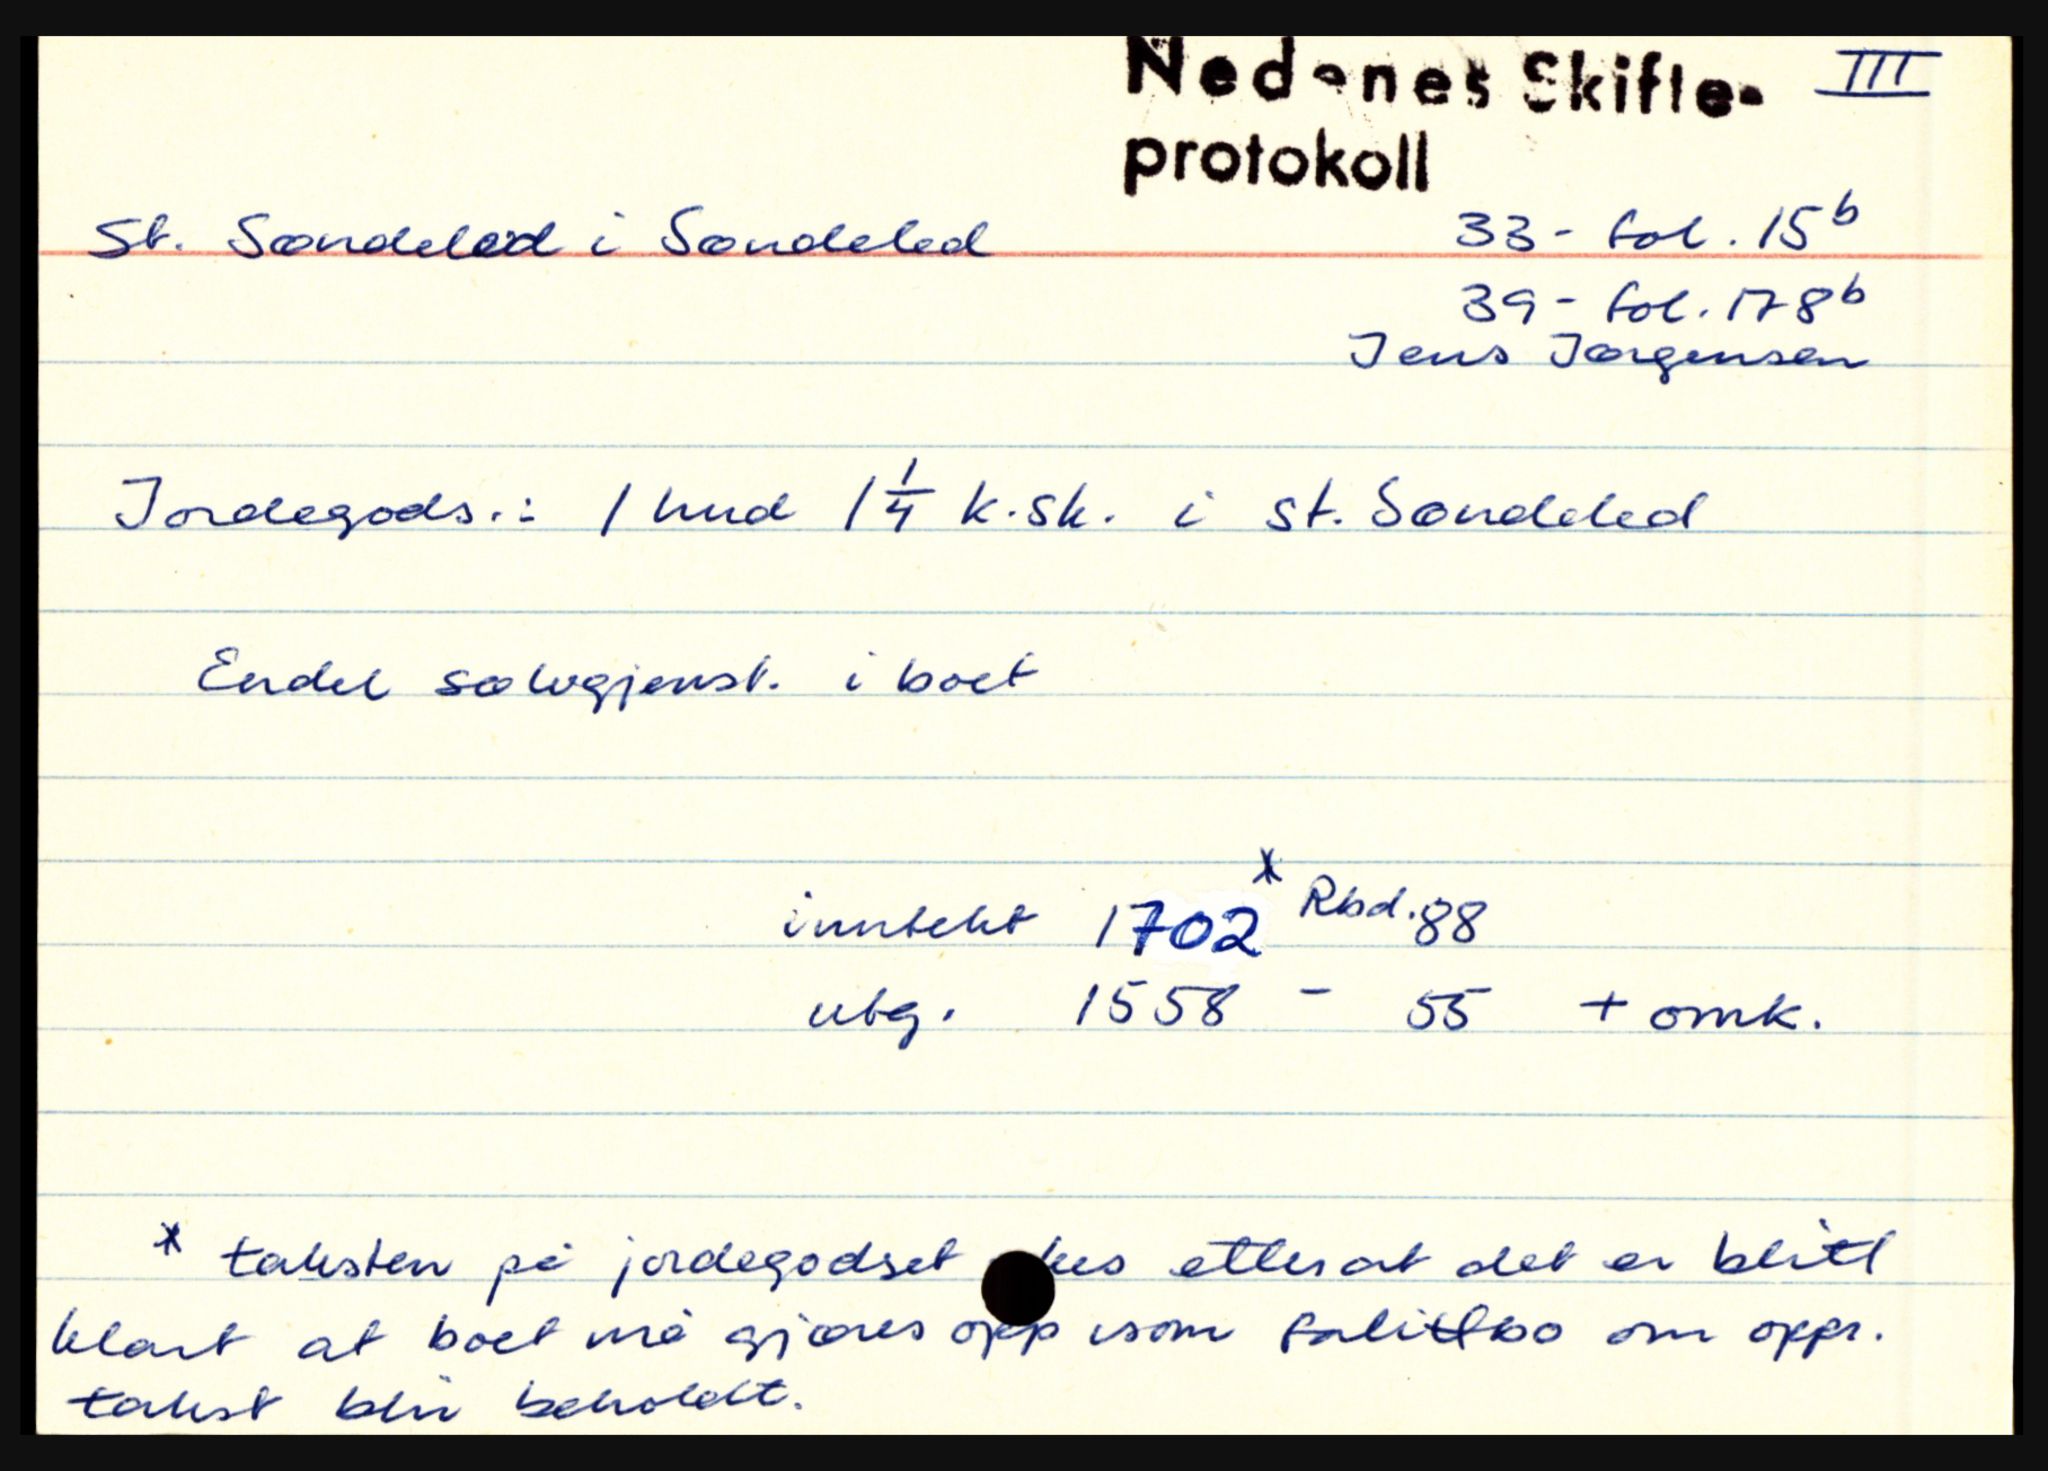 Nedenes Skifte- III
protokoll
St. Søndeled i Søndeled 33 - fol. 15b
39 - fol. 178b
Jens Jørgensen
Jordegods.: 1 hud 1 1/4 k.sk. i st. Søndeled
Endel sølvgjenst. i boet
inntekt 1702* Rbd. 88
utg. 1558 - 55 + omk.
* taksten på jordegodset etter at det er blitt
klart at boet må gjøres opp som fallitbo om oppr.
takst blir beholdt.